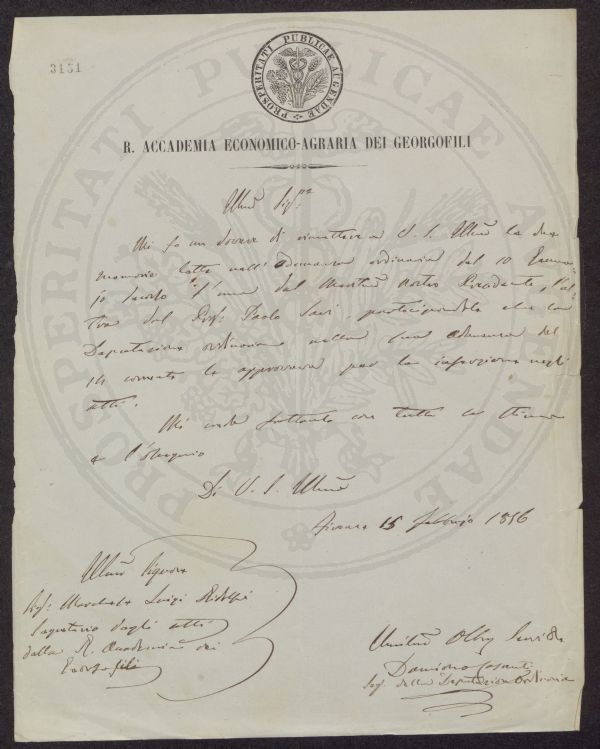 3131
PROSPERITATI PUBLICAE AUGENDAE
R. ACCADEMIA ECONOMICO-AGRARIA DEI GEORGOFILI
Illmo Sigre
Mi fo un dovere di rimettere a V. S. Illma le due
memorie lette nell'adunanza ordinaria del 10
l'una dal nostro Presidente, l'al
tra dal Prof. Paolo Savi, partecipandole che la
Deputazione ordinaria nella sua adunanza del
14 corrente le approvava per la inserzione negli
atti.
Mi creda frattanto con tutta la stima
e l'ossequio
Di V. S. Illma
Firenze 15 Febbrajo 1856
Illmo Signore
Sig. Marchese Luigi Ridolfi
Segretario degli atti
della R. Accademia dei
Georgofili
Umilmo Obbmo
Damiano Casanti
Seg. della Deputazione Ordinaria